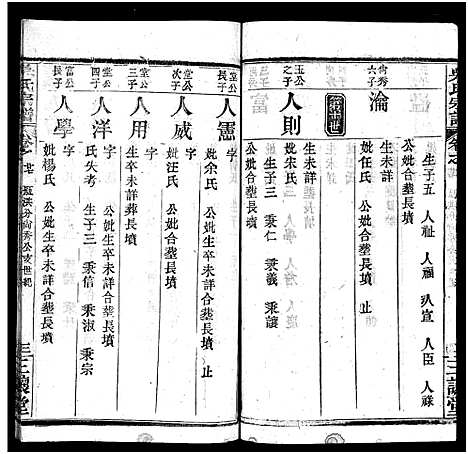 吳氏宗譜 卷之
三讓堂
生子五 人祉 人禎 人宣 人臣 人祿
公妣合塟長墳
尚秀六子 淪
生未詳
妣任氏 公妣合塟長墳 止
玉公之子 人則
生未詳
妣宋氏 生子三 秉仁 秉義 秉讓
公妣合塟長墳
堂公長子 人憲
字
妣余氏 公妣生卒未詳合塟長墳 止
堂公次子 人威
字
妣汪氏 公妣生卒未詳合塟長墳
堂公三子 人用
字
生卒未詳葬長墳
堂公四子 人洋
字
氏失考 生子三 秉信 秉淑 秉宗
公妣生卒未詳合塟長墳
富公長子 人學
字
妣楊氏 公妣生卒未詳合塟長墳
吳氏宗譜 卷之
分尚秀公支世紀
三讓堂